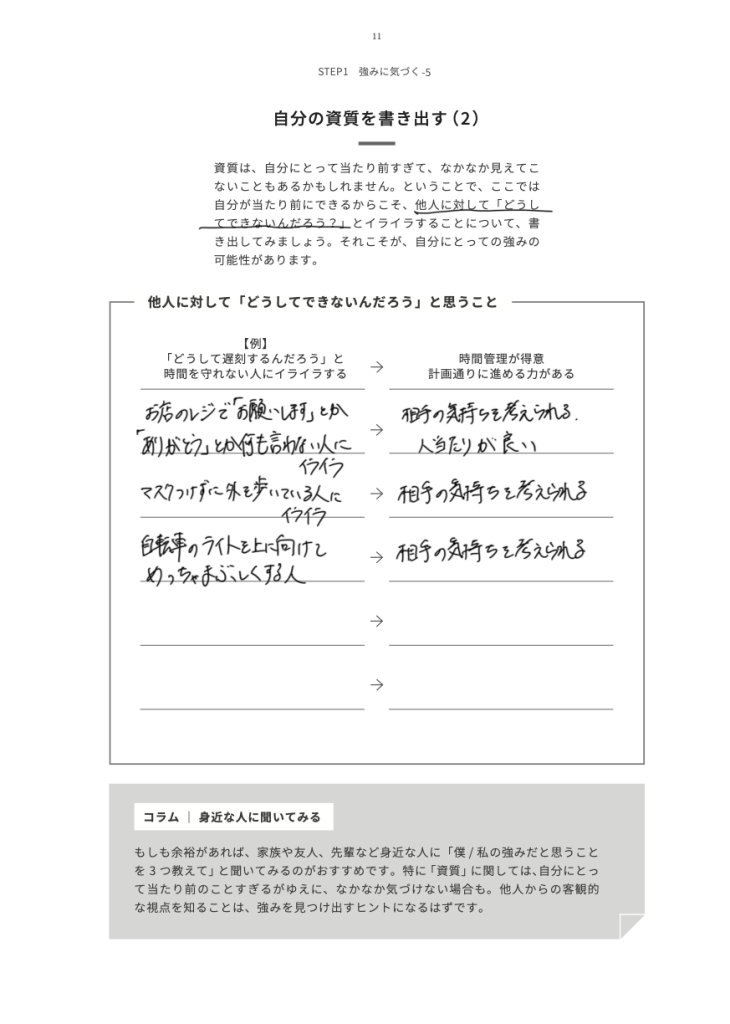 11
STEP1 強みに気づく-5
自分の資質を書き出す（2）
資質は、自分にとって当たり前すぎて、なかなか見えてこ
ないこともあるかもしれません。ということで、ここでは
自分が当たり前にできるからこそ、他人に対して「どうし
てできないんだろう？」とイライラすることについて、書
き出してみましょう。それこそが、自分にとっての強みの
可能性があります。
他人に対して「どうしてできないんだろう」と思うこと
【例】
「どうして遅刻するんだろう」と
時間を守れない人にイライラする
→
時間管理が得意
計画通りに進める力がある
お店のレジで「お願いします」とか
「ありがとう」とか何も言わない人に
イライラ
→
相手の気持ちを考えられる.
人当たりが良い
マスクつけずに外を歩いている人に
イライラ
→
相手の気持ちを考えられる
自転車のライトを上に向けて
めっちゃまぶしくする人
→
相手の気持ちを考えられる
→
→
コラム｜身近な人に聞いてみる
もしも余裕があれば、家族や友人、先輩など身近な人に「僕 / 私の強みだと思うこと
を 3 つ教えて」と聞いてみるのがおすすめです。特に「資質」に関しては、自分にとっ
て当たり前のことすぎるがゆえに、なかなか気づけない場合も。他人からの客観的
な視点を知ることは、強みを見つけ出すヒントになるはずです。